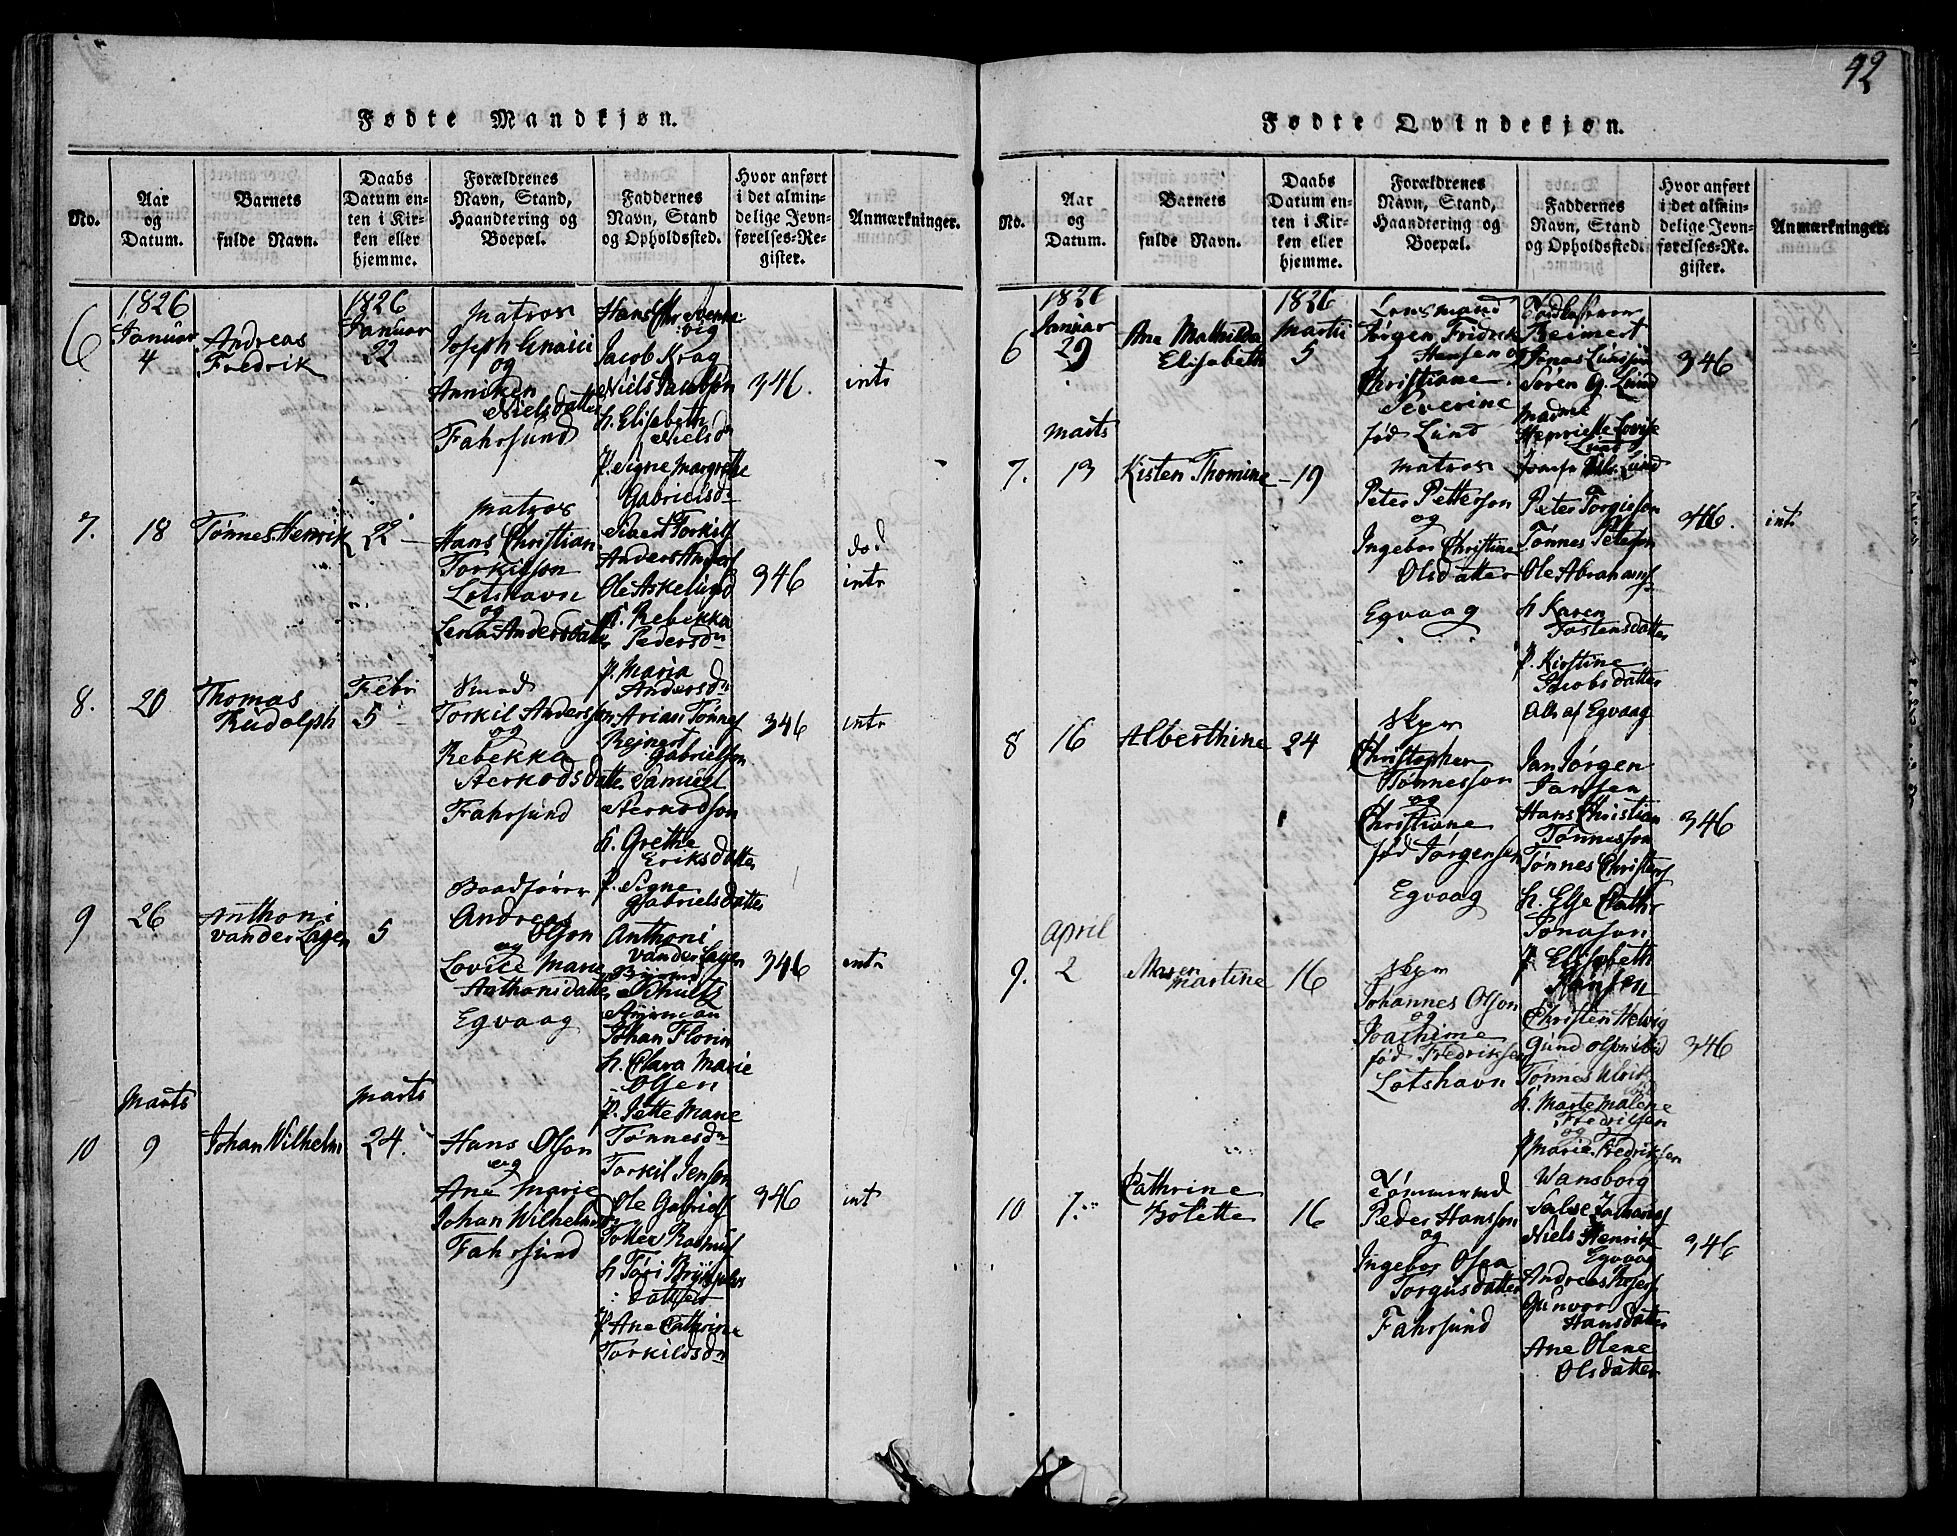 42
Fødte Mandkjøn.
No.
Aar
og
Datum.
Barnets
fulde Navn.
Daabs
Datum en-
ten i Kir-
ken eller
hjemme.
Forældrenes
Navn, Stand,
Haandtering og
Boepæl.
Faddernes
Navn, Stand
og Opholdssted.
Hvor anført
i det almin-
delige Jevn-
førelses-Re-
gister.
Anmærkninger.
6
1826
Januar
4
Andreas
Fredrik
1826
Januar
22
Matros
Joseph
og
Anniken
Nielsdatter
Fahrsund
Hans Chr
Jacob Krag
Niels Jacobsen
h. Elisabeth
Nielsdr
p. Signe Margrethe
Gabrielsdr
346.
intr
7.
18
Tønnes Henrik
22
Matros
Hans Christian
Torkilson
Lotshavn
og
Lena Andersdatter
Torkils
Anders Anders
Ole Askelund
h. Rebekka
Pedersdr
p. Maria
Andersdr
346
død
intr
8.
20
Thomas
Rudolph
Febr
5
Smed
Torkil Anderson
og
Rebekka
Sterkodsdatter
Fahrsund
Arian Tønnes
Reinert
Gabrielson
Samuel
Sterkodson
h. Grethe
Eriksdatter
p. Signe
Gabrielsdatter
346
intr
9
26
Anthoni
vander Lagen
5
Baadfører
Andreas
Olson
og
Lovice Marie
Anthonisdatter
Egvaag
Anthoni
vander Lagen
Schults
Styrman
Johan Florin
h. Clara Marie
Olsen
p. Jette Marie
Tønnesdr
346
intr
10
Marts
9
Johan Wilhelm
Marts
24.
Hans Olson
og
Ane Marie
Johan Wilhelms
Fahrsund
Torkil Jenson
Ole Gabriels
Rasmus
h Tori
datter
p. Ane Cathrine
Torkildsdr
346
int
Fødte Qvindekjøn.
No.
Aar
og
Datum.
Barnets
fulde Navn.
Daabs
Datum en-
ten i Kir-
ken eller
hjemme.
Forældrenes
Navn, Stand,
Haandtering og
Boepæl.
Faddernes
Navn, Stand
og Opholdssted.
Hvor anført
i det almin-
delige Jevn-
førelses-Re-
gister.
Anmærkninger.
6
1826
Januar
29
Ane Mathilda
Elisabeth
1826
Martii
5
Lensmand
Jørgen Fridrik
Hansen og
Christiane
Severine
fød Lund
Reimert
Jonas Lund
Søren G. Lund
Madme
Henriette Lovise
Lund
Lund
346
7.
Marts
13
Kisten Thomine
19
Matros
Peter Petterson
og
Ingebor Christine
Olsdatter
Egvaag
Peter Torgieson
Tønnes Peterson
Ole Abrahams
h Karen
Tostensdatter
p. Kirstine
Jacobsdatter
Alle af Egvaag
346.
int
8
16
Alberthine
24
Skpr
Christopher
Tønnesson
og
Christiane
fød Jørgensen
Egvaag
Jan Jørgen
Janssen
Hans Christian
Tønnesson
Tønnes Christens
h. Else Cathr
Jonason
p Elisabeth
Hansen
346
9.
April
2
Maren
Martine
16
Skpr
Johannes Olson
og
Joachime
fød Fredriksen
Lotshavn
Christen Helvig
Gund Olson
Tønnes Ulrik
h. Marte Malene
Fredriksen
og
p Marie Fredriksen
346
10
7.
Cathrine
Bolette
16
Tømmermd
Peder Hansson
og
Ingebor Olsea
Torgusdatter
Fahrsund
Wansborg
Niels Henrik
Egvaag
Andreas
Gunvor
Hansdatter
Ane Olene
Olsdatter
346